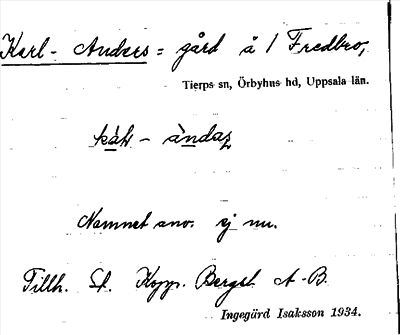 Karl-Anders = gård å 1 Fredbro,
Tierps sn, Örbyhus hd, Uppsala län.
Namnet anv. ej nu.
Tillh. St. Kopp. Bergsl. A-B.
Ingegärd Isaksson 1934.